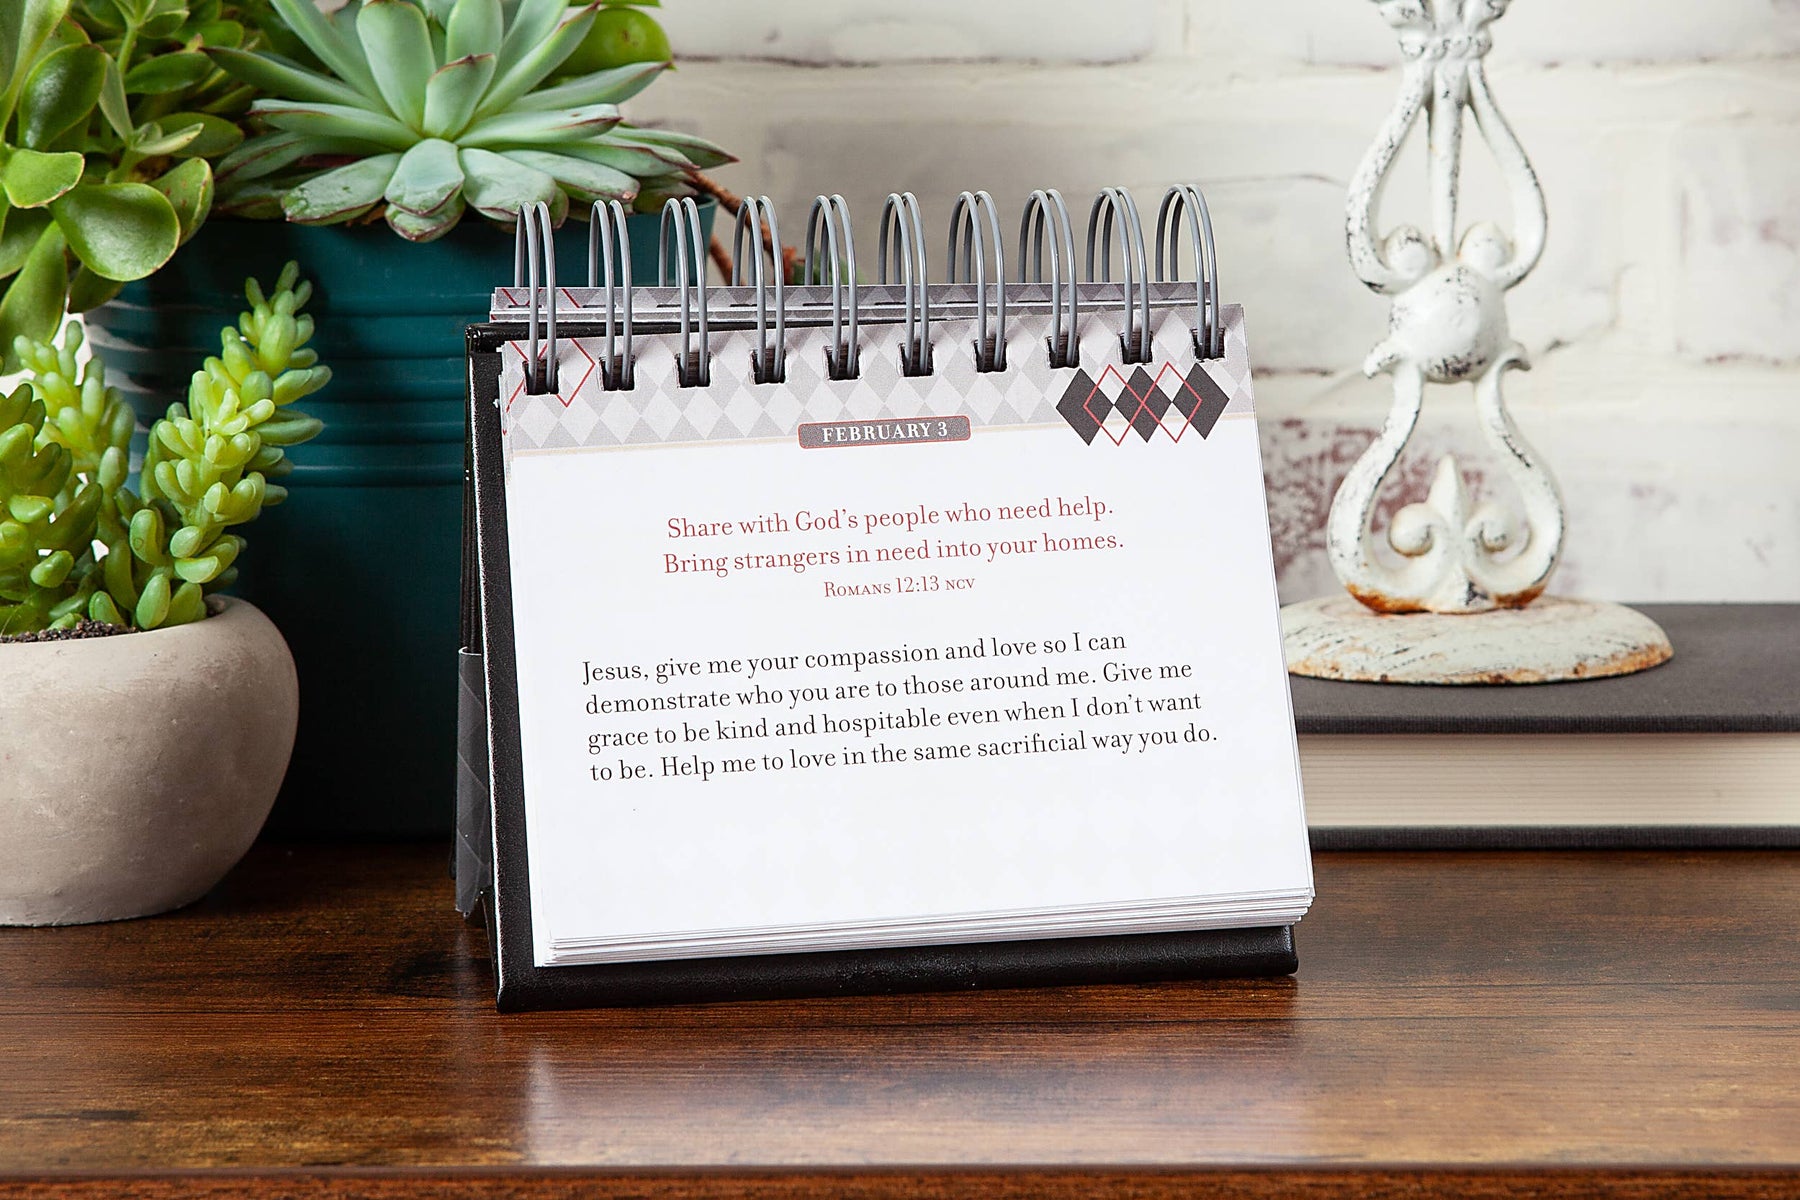 FEBRUARY 3
Share with God's people who need help.
Bring strangers in need into your homes.
ROMANS 12:13 NCV
Jesus, give me your compassion and love so I can
demonstrate who you are to those around me. Give me
grace to be kind and hospitable even when I don't want
to be. Help me to love in the same sacrificial way you do.